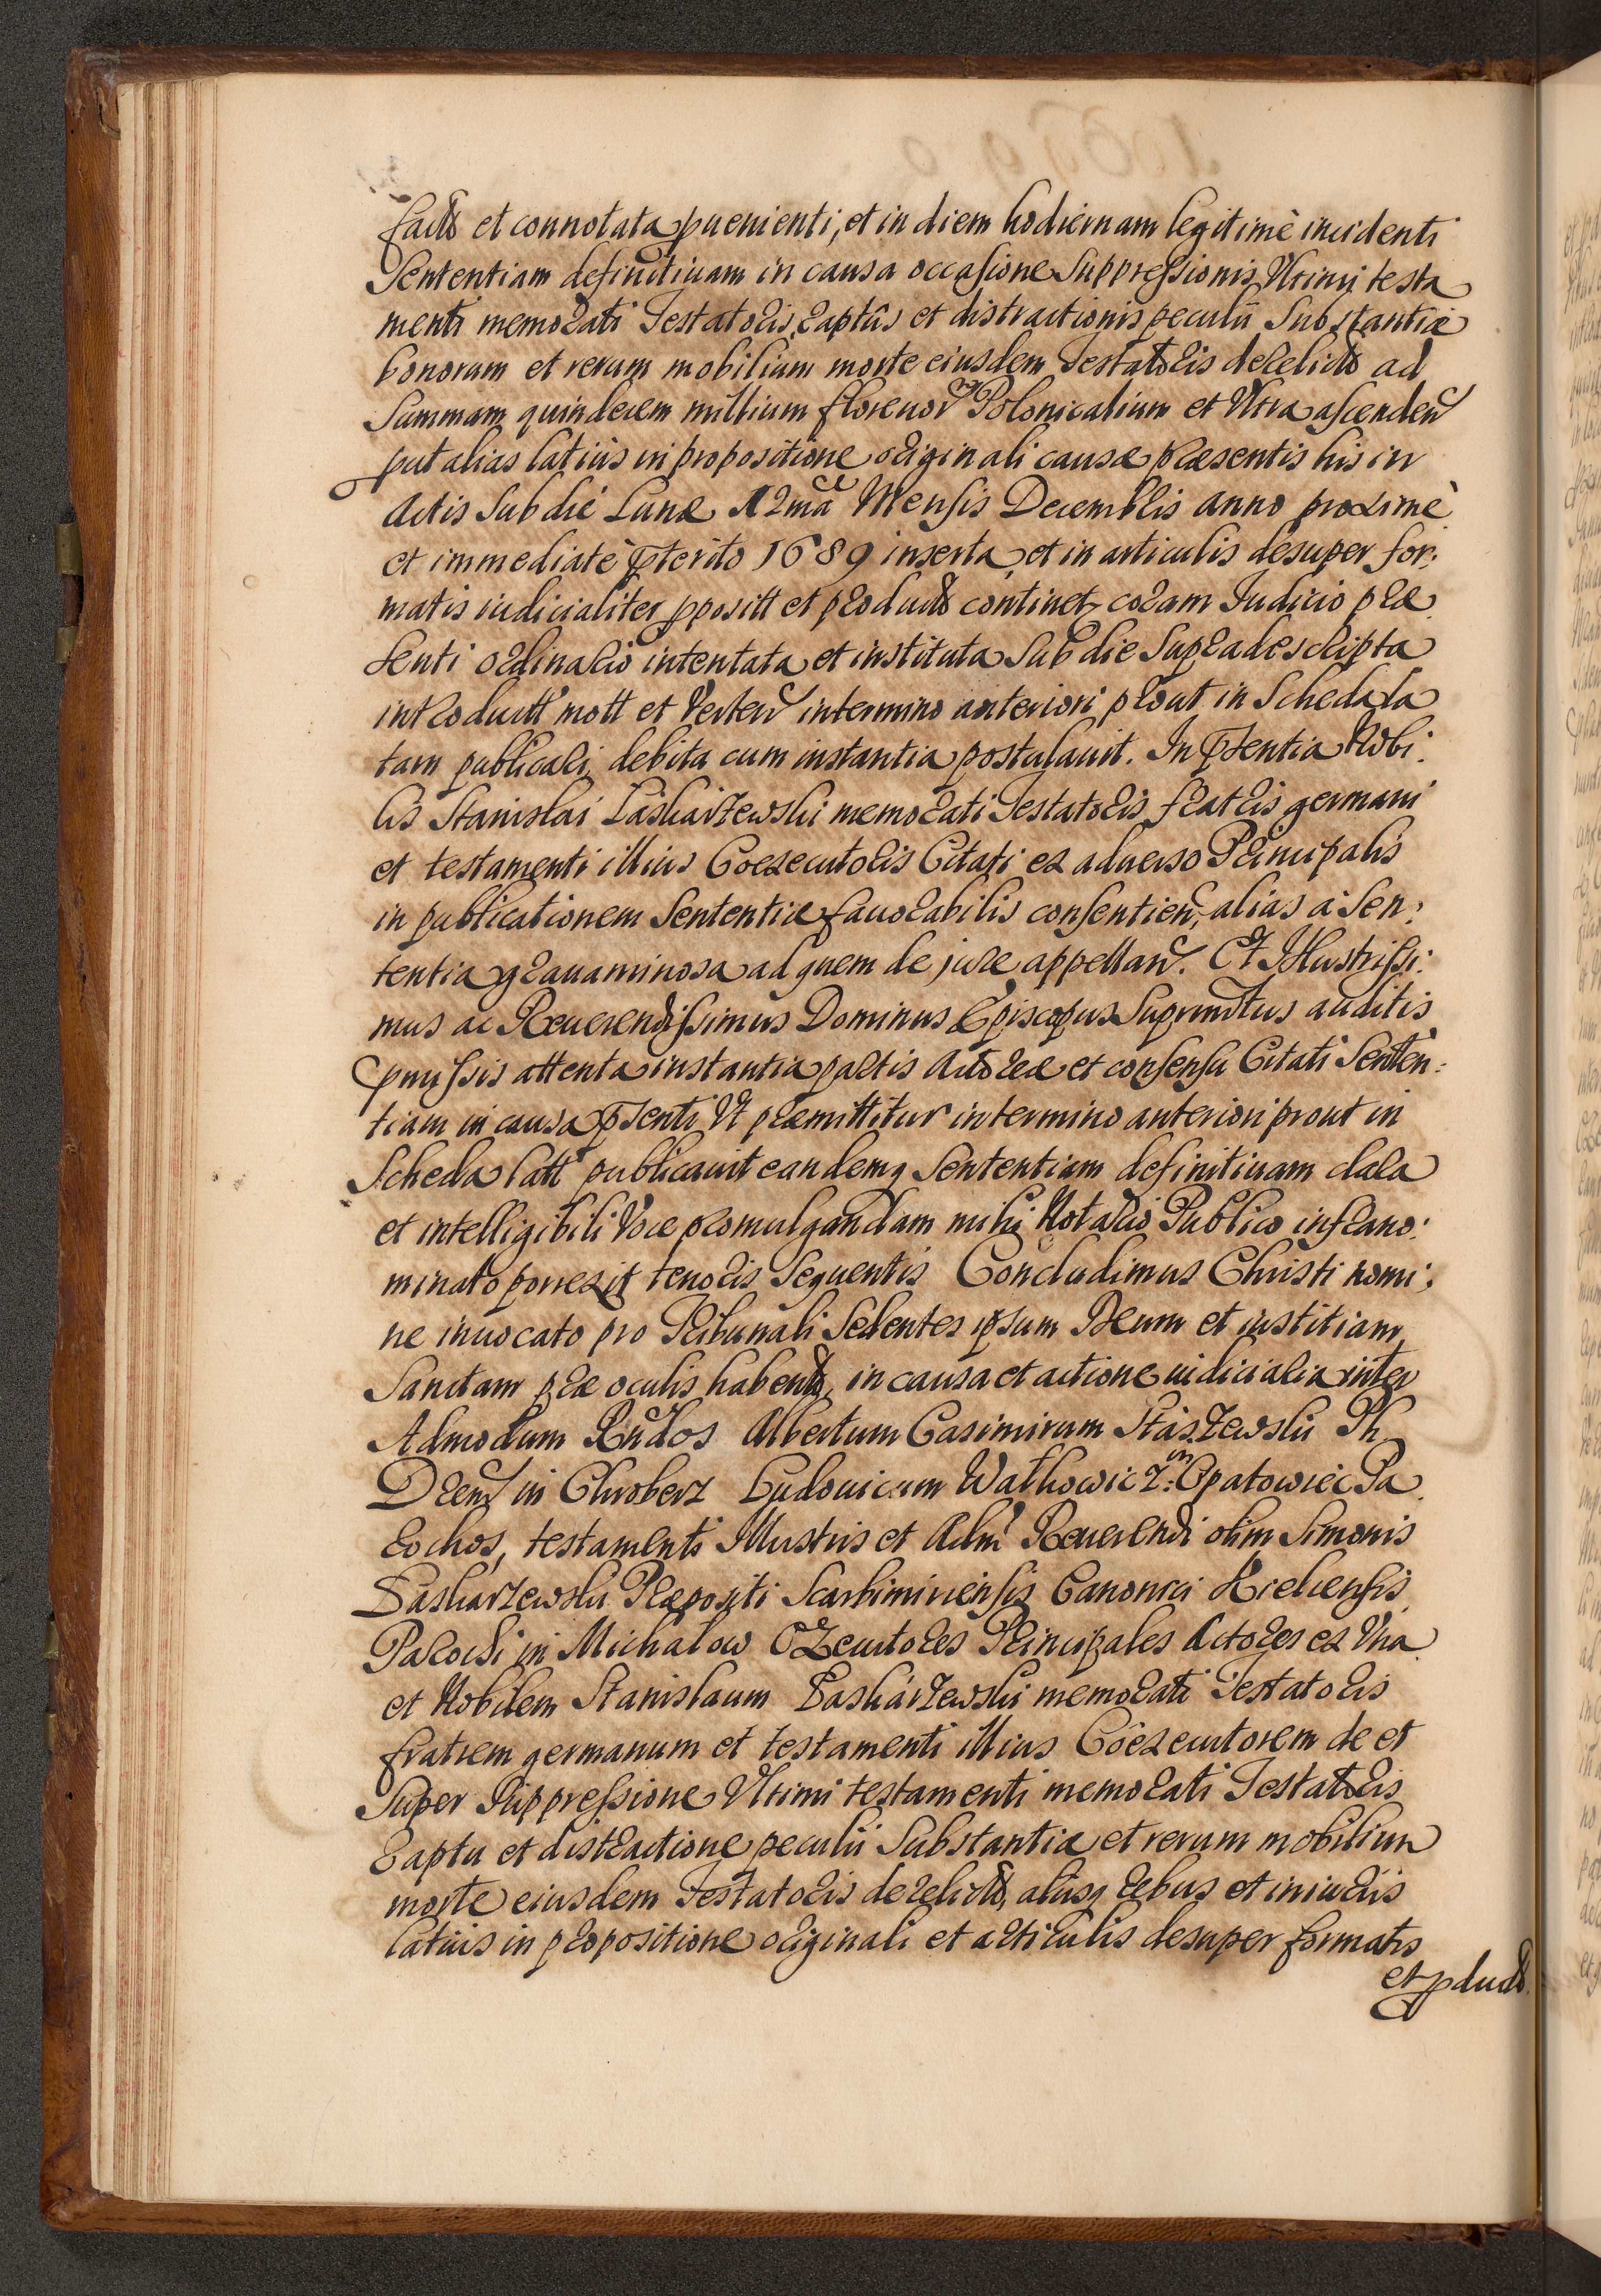 factt et connotata pueni­enti, et in diem hodiernam legitimè incidenti
Sententiam definitiuam in causa occasione Suppressionis Vltimi testa
menti memorati Testatoris, raptûs et distractionis peculii Substantiæ
bonorum et rerum mobilium morte eiusdem Testatoris derelictt ad
Summam quindecem millium florenor Polonicalium et Vltra ascenden
put alias latiùs in propositione originali causæ præsentis his in
Actis Sub die Lunæ 12ma Mensis Decembris anno proximè
et immediatè pterito 1689 inserta, et in articulis desuper for:
matis iudicialiter ppositt et productt continet, coram Iudicio præ
senti ordinario intentata et instituta Sub die Supradescripta
introductt mott et Verten in termino anteriori prout in Scheda la
tam publicari, debita cum instantia postulauit. In psentia Nobi:
lis Stanislai Laskarzewski memorati Testatoris fratris germani
et testamenti illius Coexecutoris Citati ex aduerso Principalis
in publicationem Sententiæ fauorabilis consentien, alias à Sen:
tentia grauaminosa ad quem de jure appellan. Et Illustrissi:
mus ac Reuerendissimus Dominus Episcopus Suprmttus auditis
pmissis attenta instantia partis Actoreæ et consensu Citati Senten:
tiam in causa psenti Vt præmittitur in termino anteriori prout in
Scheda latt publicauit eandemq Sententiam definitiuam clara
et intelligibili Voce promulgandam mihi Notario Publico infrano:
minato porrexit tenoris Sequentis Concludimus Christi nomi:
ne inuocato pro Tribunali Sedentes ipsum Deum et iustitiam
Sanctam præ oculis habentt, in causa et actione iudicialia inter
Admodum Rndos Albertum Casimirum Staszewski Ph
Dren in Chroberz Ludouicum Watkowicz: in Opatowiec Pa
rochos, testamenti Illustris et Adm Reuerendi olim Simonis
Laskarzewski Præpositi Scarbimiriensis Canonici Kielcensis
Parochi in Michalow Exzecutores Principales Actores ex Vna
et Nobilem Stanislaum Laskarzewski memorati Testatoris
fratrem germanum et testamenti illius Coexecutorem de et
Super Suppressione Vltimi testamenti memorati Testatoris
raptu et distractione peculii Substantiæ et rerum mobilium
morte eiusdem Testatoris derelictt, aliisq rebus et iniuriis
latius in propositione originali et articulis desuper formatis
et pductt